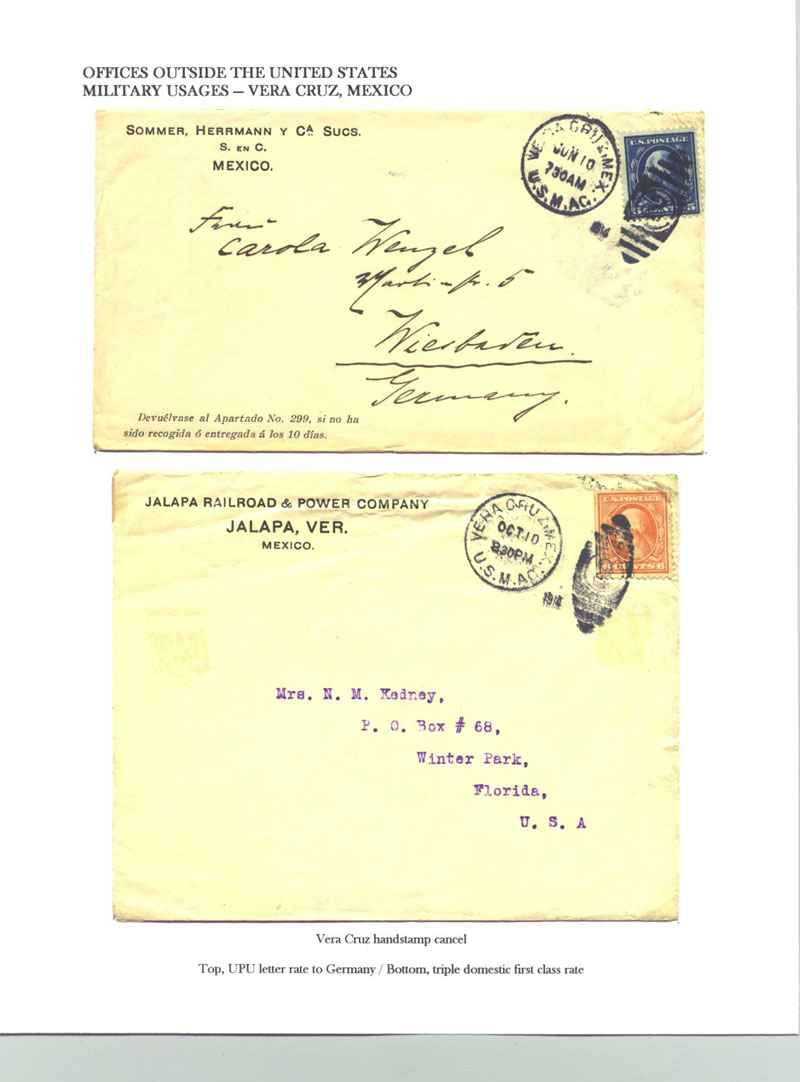 OFFICES OUTSIDE THE UNITED STATES
MILITARY USAGES – VERA CRUZ, MEXICO
SOMMER, HERRMANN Y CA. SUCS.
S. EN C.
MEXICO.
VERA CRUZ, MEX.
JUN 10
730AM
U.S.M.AG.
1914
U.S. POSTAGE
5 CENTS 5
Frau
Carola Wenzel
5
Wiesbaden.
Germany.
Devuélvase al Apartado No. 299, si no ha
sido recogida ó entregada á los 10 días.
JALAPA RAILROAD & POWER COMPANY
JALAPA, VER.
MEXICO.
VERA CRUZ, MEX.
OCT 10
830PM
U.S.M.AG.
1914
U.S. POSTAGE
6 CENTS 6
Mrs. N. M. Kedney,
P. O. Box # 68,
Winter Park,
Florida,
U. S. A
Vera Cruz handstamp cancel
Top, UPU letter rate to Germany / Bottom, triple domestic first class rate